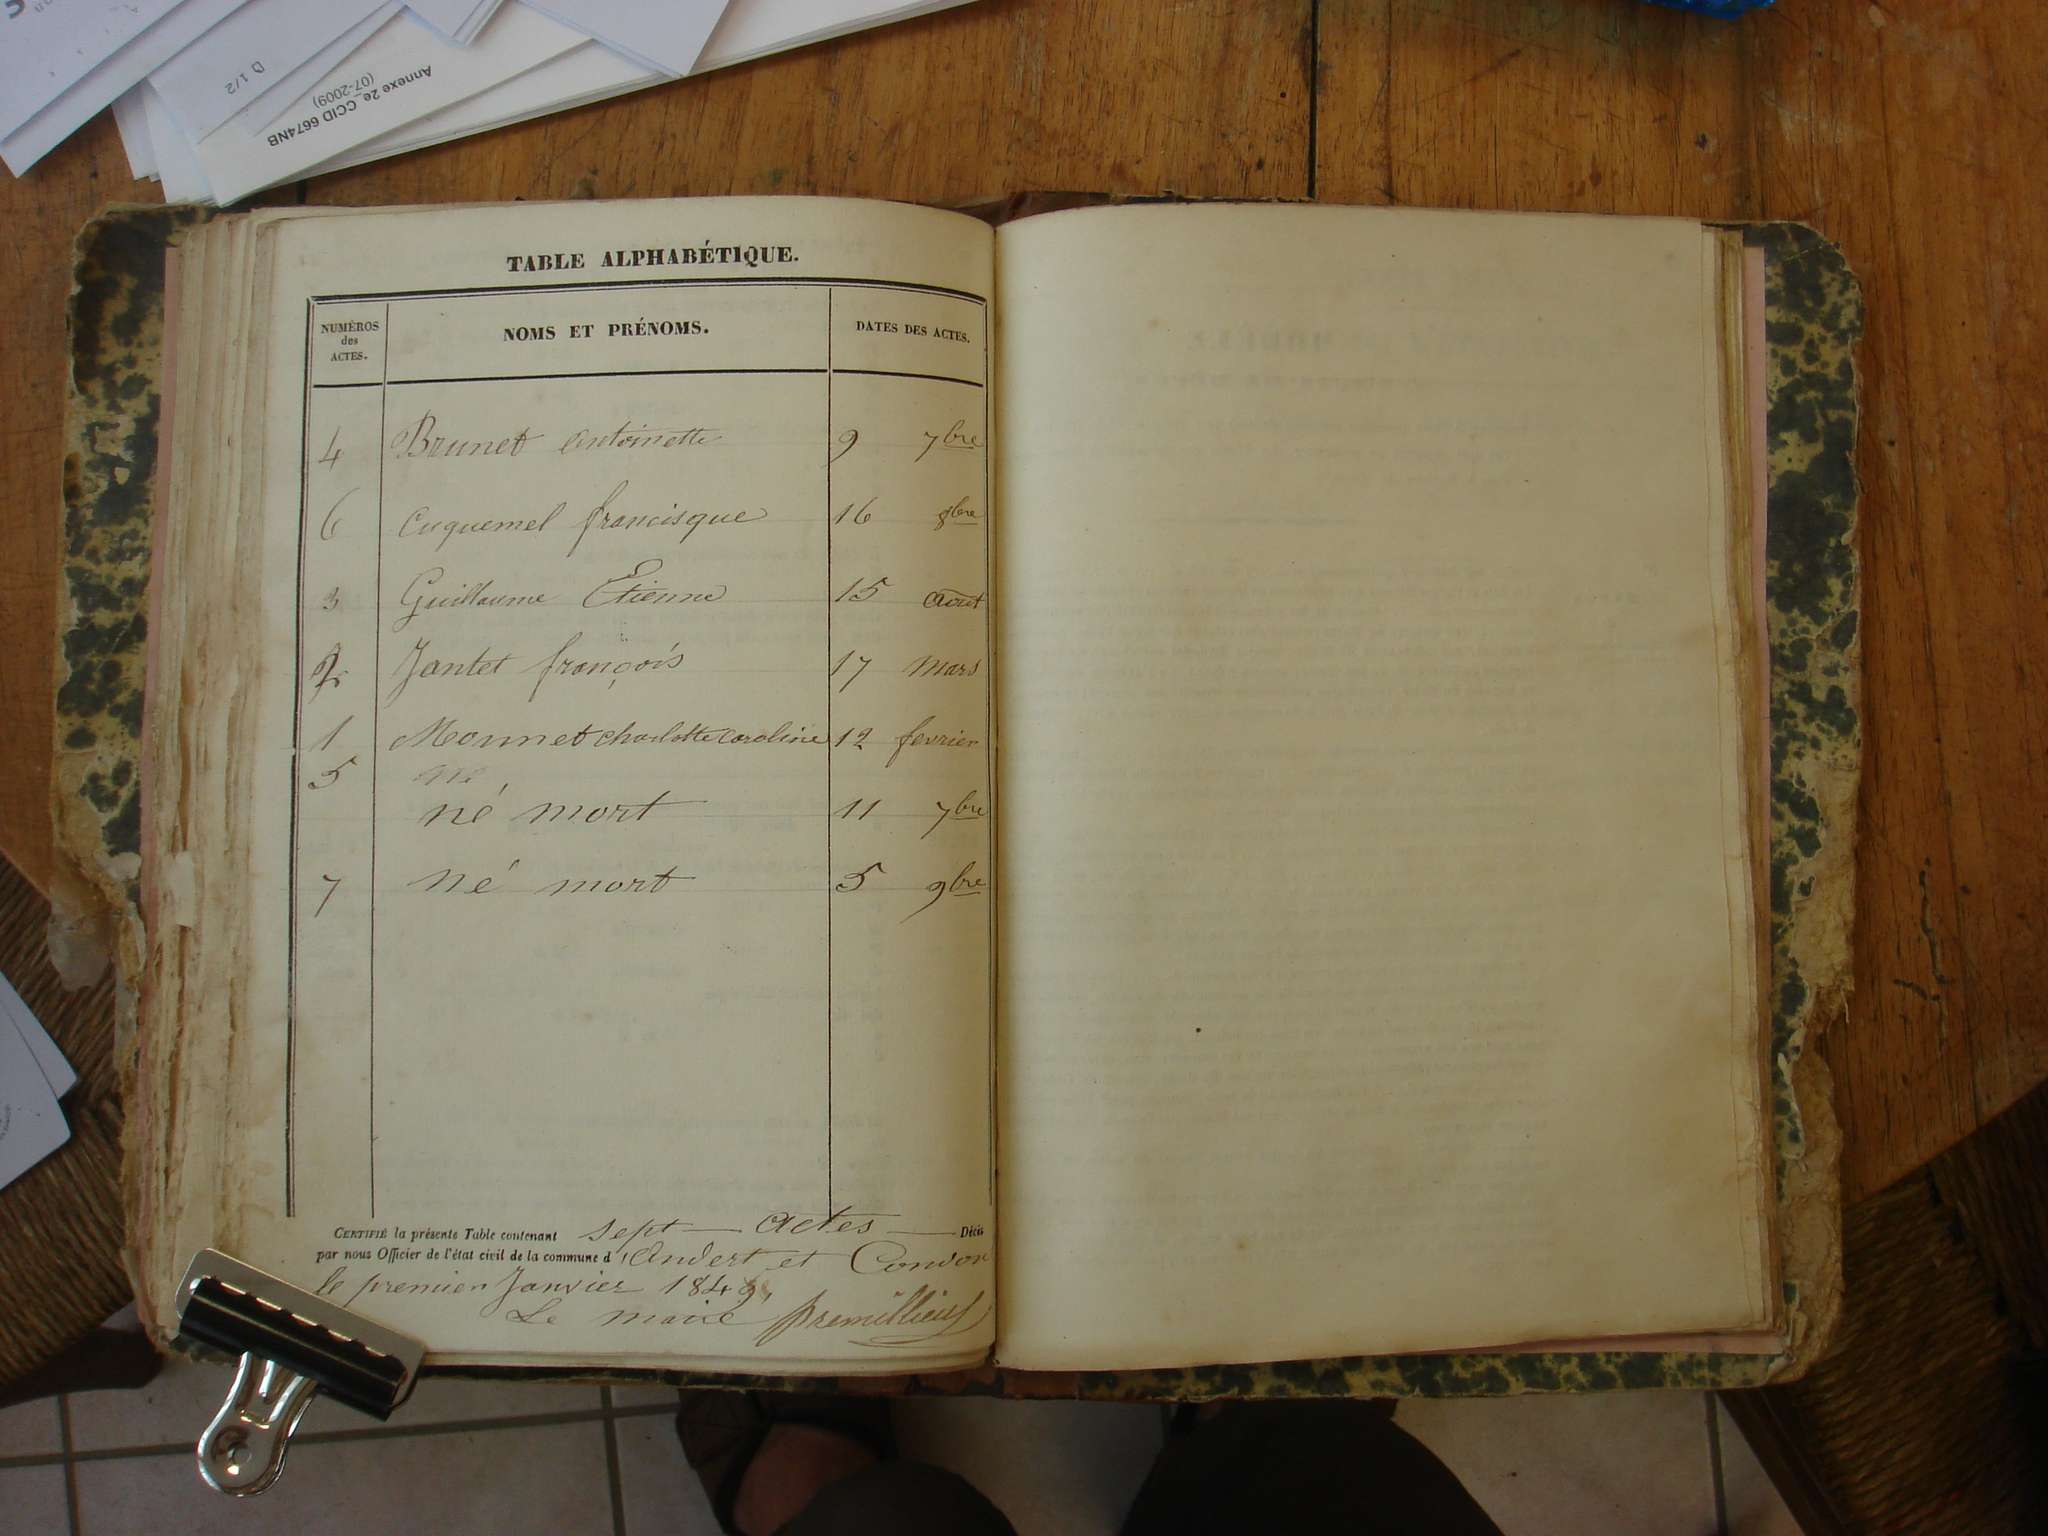 D 1/2
Annexe 2e CCID 6674NB
(07-2009)
TABLE ALPHABÉTIQUE.
NUMÉROS des ACTES.
NOMS ET PRÉNOMS.
DATES DES ACTES.
4 Brunet antoinette 9 7bre
6 Cuquemel francisque 16 8bre
3 Guillaume Etienne 15 aout
2 Jantet françois 17 mars
1 Monnet charlotte caroline 12 fevrier
5
né mort 11 7bre
7 né mort 5 9bre
CERTIFIÉ la présente Table contenant sept — actes — Décès
par nous Officier de l'état civil de la commune d'Andert et Condon
le premier Janvier 1849,
Le maire premillieu